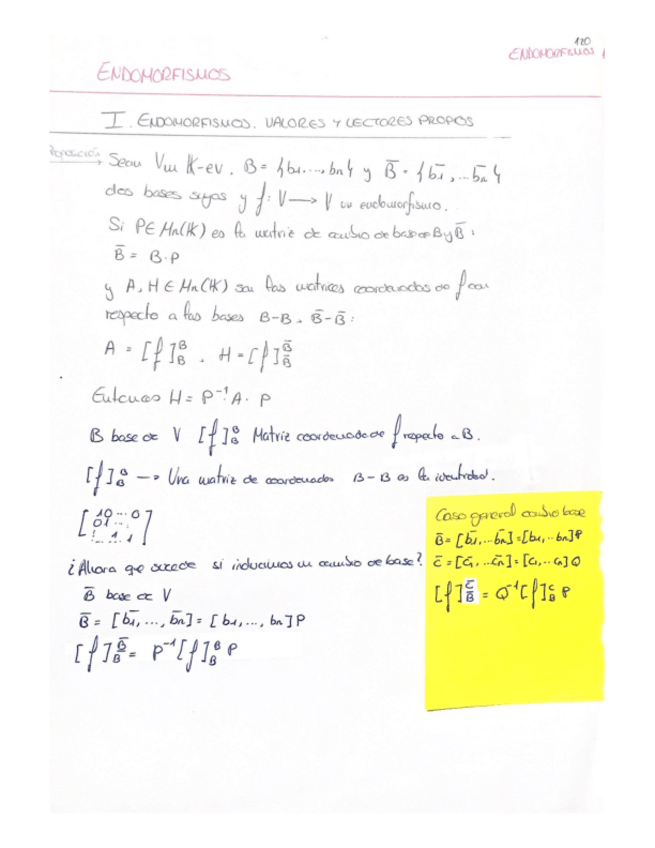 120
ENDOMORFISMOS
ENDOMORFISMOS
I. ENDOMORFISMOS. VALORES Y VECTORES PROPIOS
Proposición
Sean V un K-ev. B = {b1,..., bn} y B̄ = {b̄1, ... b̄n}
dos bases suyas y f: V → V un endomorfismo.
Si P ∈ Mn(K) es la matriz de cambio de base de B y B̄:
B̄ = B·P
y A, H ∈ Mn(K) son las matrices coordenadas de f con
respecto a las bases B-B, B̄-B̄:
A = [f]_B^B , H = [f]_B̄^B̄
Entonces H = P⁻¹·A·P
B base de V [f]_B^B Matriz coordenada de f respecto a B.
[f]_B^B → Una matriz de coordenadas B-B es la identidad.
[10...0
01...
: . . 1]
¿Ahora que sucede si inducimos un cambio de base?
B̄ base de V
B̄ = [b̄1, ..., b̄n] = [b1, ..., bn]P
[f]_B̄^B̄ = P⁻¹[f]_B^B P
Caso general cambio base
B̄ = [b̄1, ... b̄n] = [b1, ... bn]P
C̄ = [c̄1, ... c̄n] = [c1, ... cn]Q
[f]_B̄^C̄ = Q⁻¹[f]_B^C P